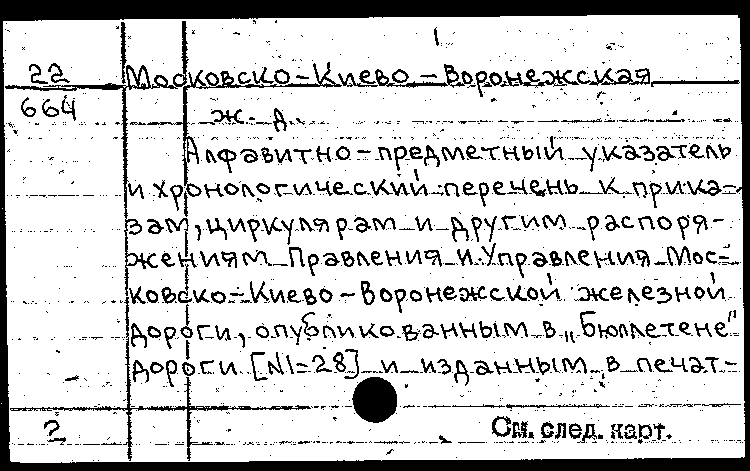 1
22 Московско-Киево-Воронежская
664 ж. д.
Алфавитно-предметный указатель
и хронологический перечень к прика-
зам, циркулярам и другим распоря-
жениям Правления и Управления Мос-
ковско-Киево-Воронежской железной
дороги, опубликованным в „Бюллетене"
дороги [N1=28] и изданным в печат-
2 См. след. карт.